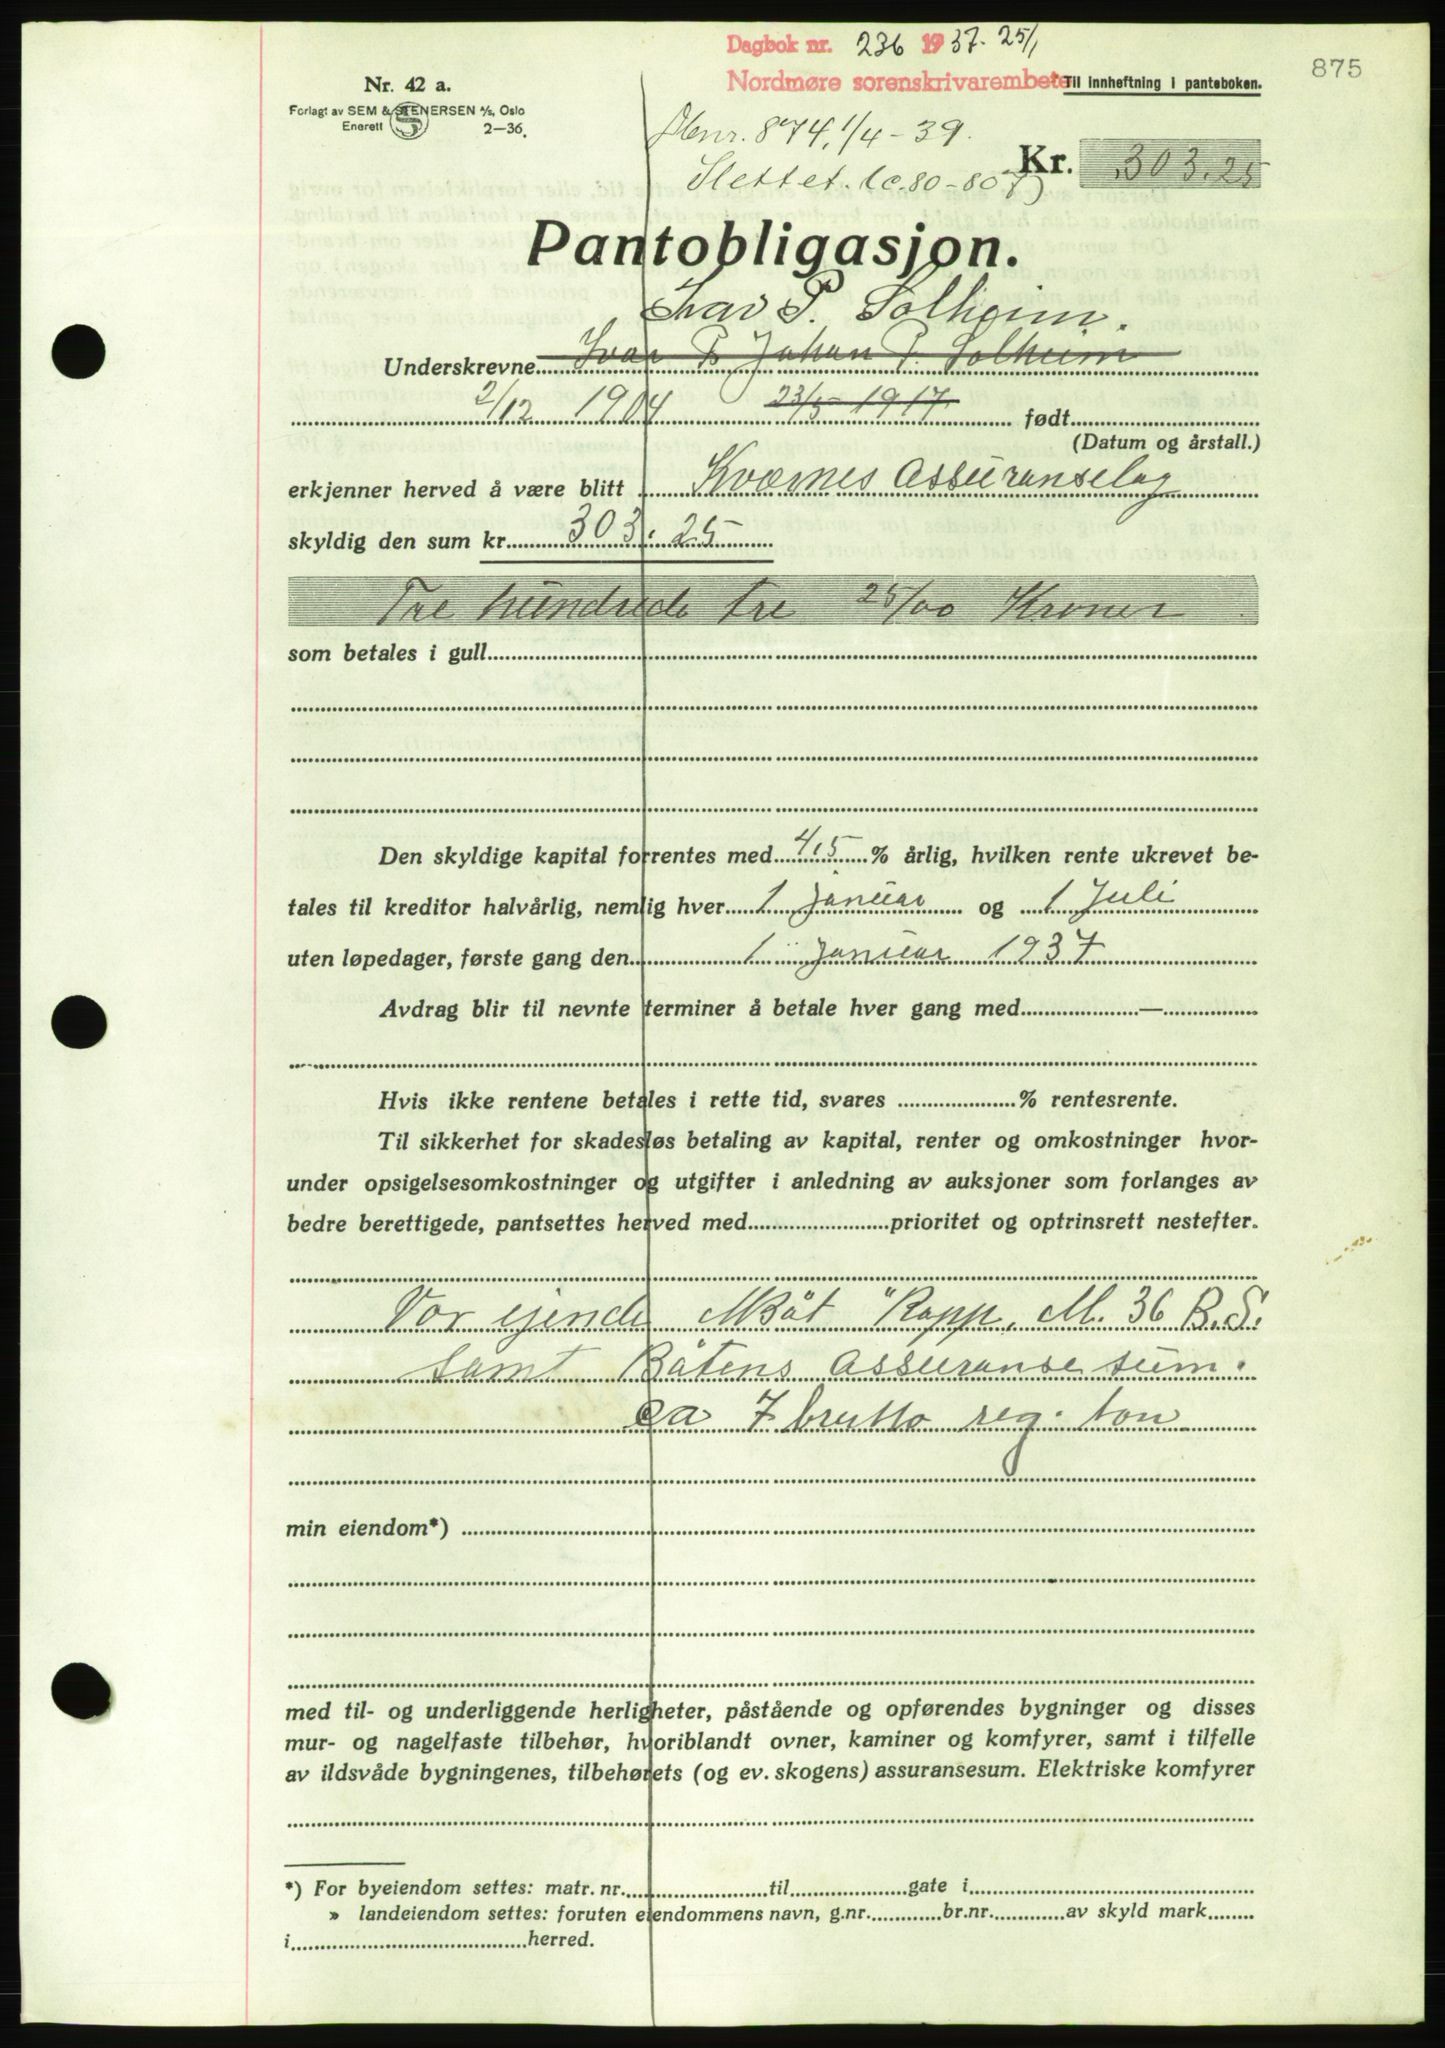 Dagbok nr. 236 1937. 25/1
875
Nr. 42 a.
Nordmøre sorenskrivarembete
Til innheftning i panteboken.
Forlagt av SEM & STENERSEN A/S, Oslo
Enerett 2–36.
874, 1/4 - 39.
Slettet. 80-807)
Kr. 303.25
Pantobligasjon.
Ivar P. Solheim.
Underskrevne Ivar P. Johan P. Solheim
2/12 1904 23/5 1917 født
(Datum og årstall.)
erkjenner herved å være blitt Kvernes Assuranselag
skyldig den sum kr. 303.25
Tre hundrede tre 25/00 Kroner
som betales i gull
Den skyldige kapital forrentes med 4,5 % årlig, hvilken rente ukrevet be-
tales til kreditor halvårlig, nemlig hver 1 Januar og 1 Juli
uten løpedager, første gang den 1 Januar 1937
Avdrag blir til nevnte terminer å betale hver gang med —
Hvis ikke rentene betales i rette tid, svares % rentesrente.
Til sikkerhet for skadesløs betaling av kapital, renter og omkostninger hvor-
under opsigelsesomkostninger og utgifter i anledning av auksjoner som forlanges av
bedre berettigede, pantsettes herved med prioritet og optrinsrett nestefter.
Vor ejende MBåt "Rapp. M. 36 B.S.
samt Båtens Assuranse sum.
ca 7 brutto reg. ton
min eiendom*)
med til- og underliggende herligheter, påstående og opførendes bygninger og disses
mur- og nagelfaste tilbehør, hvoriblandt ovner, kaminer og komfyrer, samt i tilfelle
av ildsvåde bygningenes, tilbehørets (og ev. skogens) assuransesum. Elektriske komfyrer
*) For byeiendom settes: matr. nr. til gate i
» landeiendom settes: foruten eiendommens navn, g.nr. br.nr. av skyld mark
i herred.